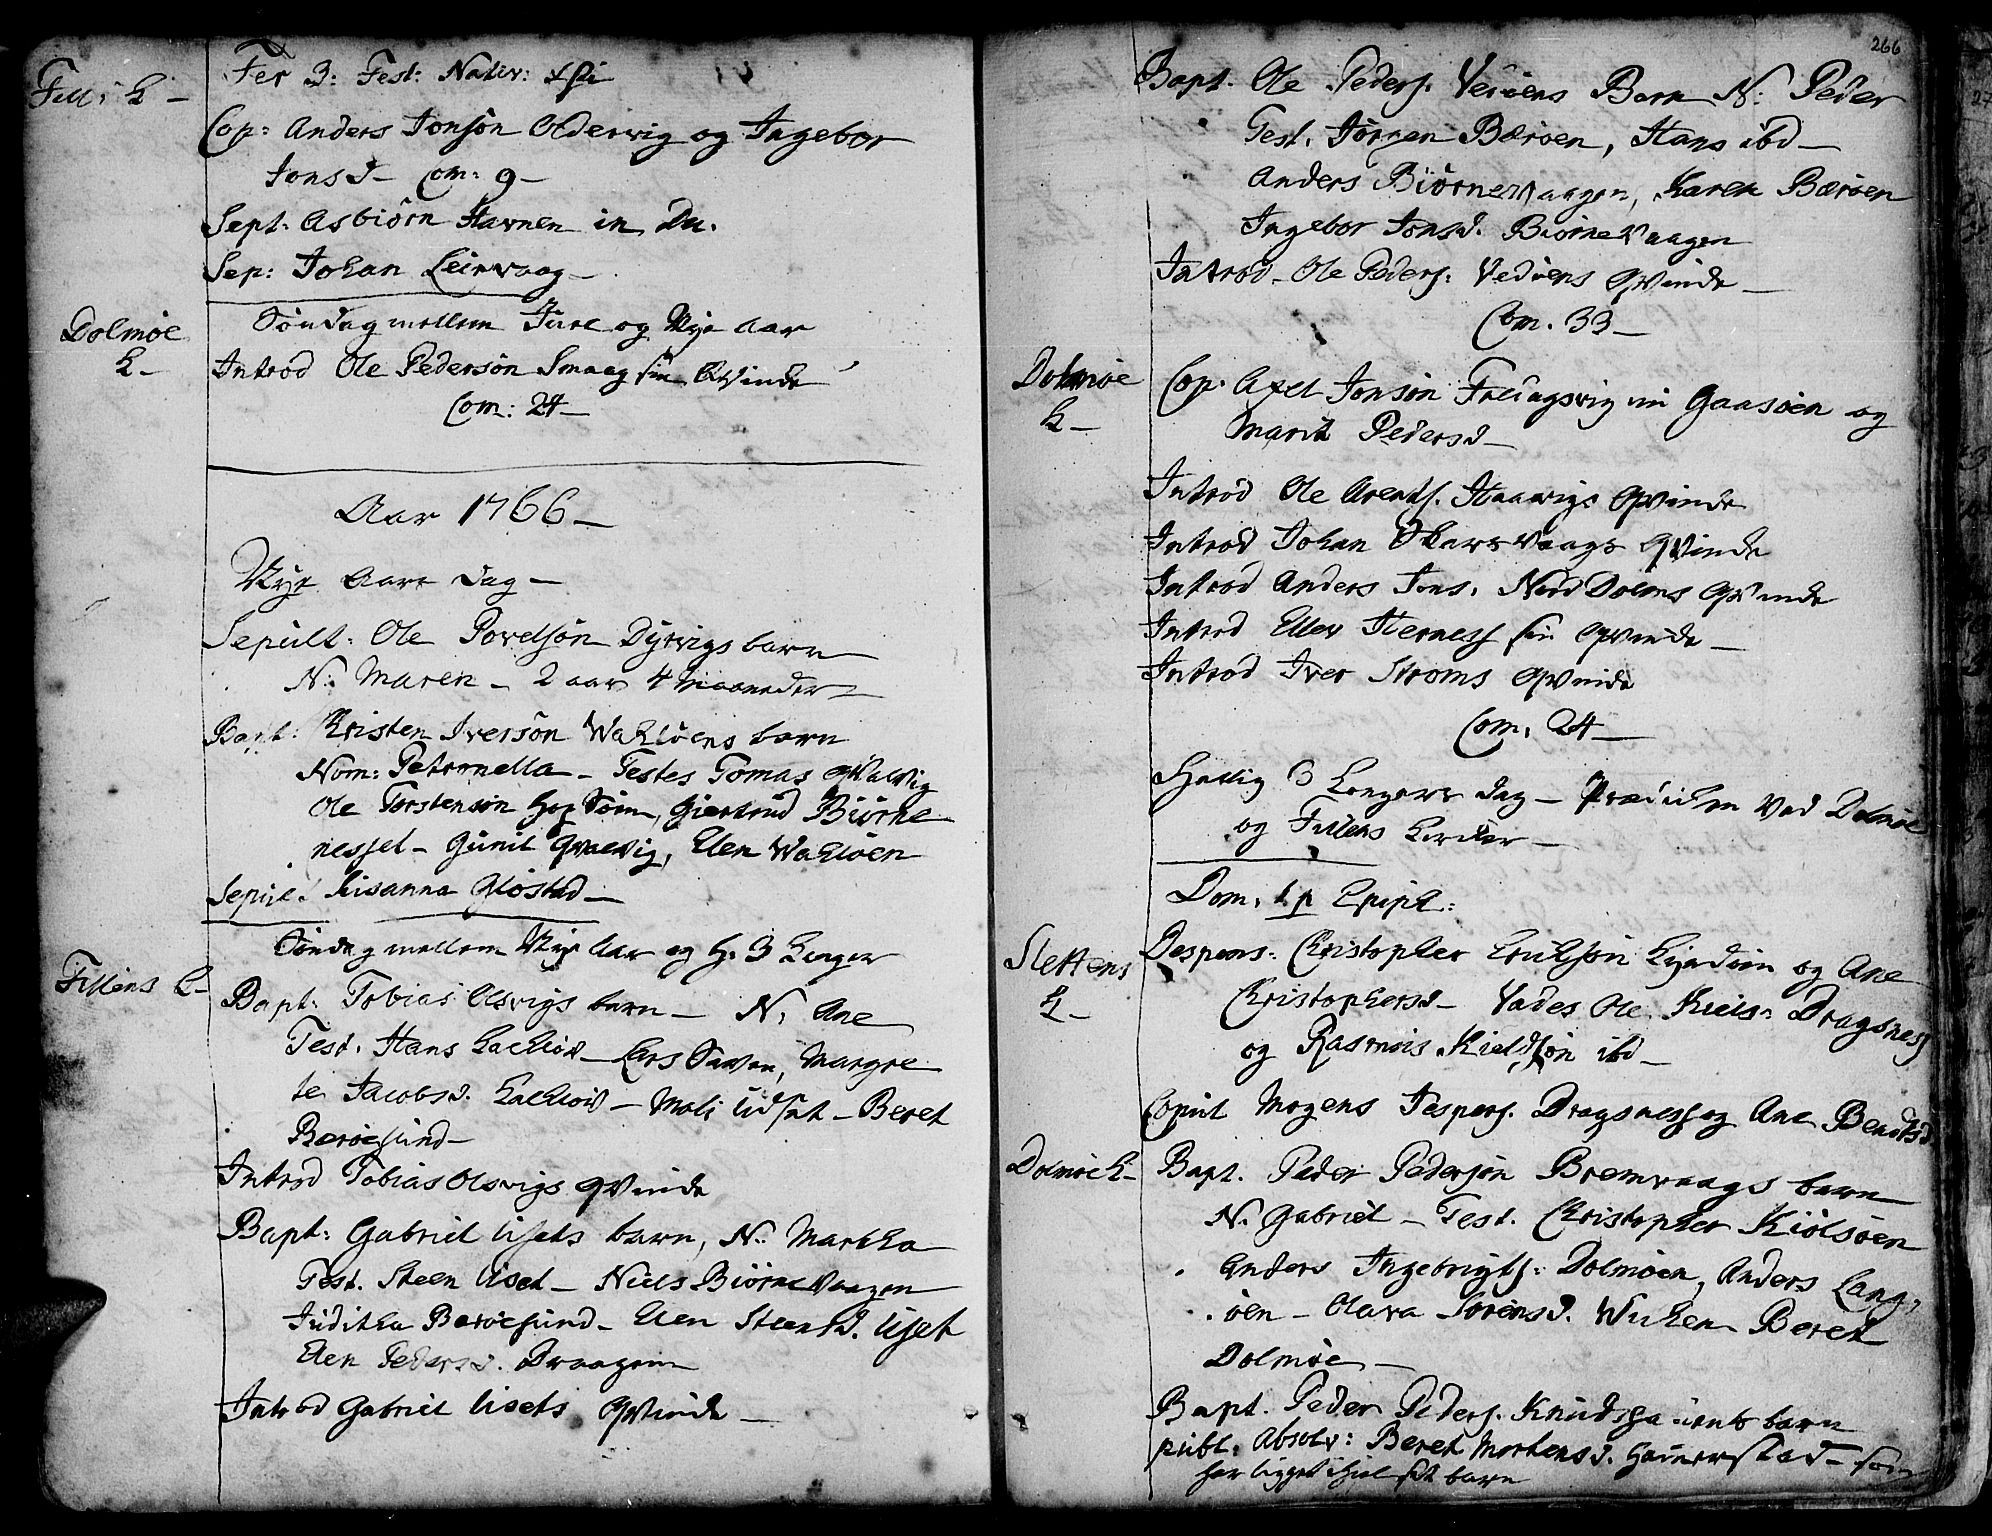 Fill: K –
Fer 3: Fest: Nativ: xsti
Cop: Anders Jonsøn Oldervig og Ingebor
Jonsd – Com: 9 –
Sept: Asbiörn Havnen in Du.
Sep: Johan Leirvaag –
Dolmöe
K –
Söndag mellem Juel og Nye Aar
Introd Ole Pedersön Smaag sin Qvinde
Com: 24 –
Aar 1766 –
Nye Aars Dag –
Sepult: Ole Povelsøn Dyrvigs barn
N: Maren – 2 aar 4 maaneder –
Bapt: Kristen Iversön Wahlöens barn
Nom: Petronella – Testes Tomas Qvalvig
Ole Torstensön Hopsöm, Giertrud Biörne
nessel – Gunil Qvalvig, Elen Wahlöen
Sepul: Susanna Gløstad –
Fillens K –
Söndag mellem Nye Aar og H: 3 Konger
Bapt: Tobias Olsvigs barn – N: Ane
Test. Hans Lachlod – Lars Saven, Margre
te Jacobsd. Lachloid – Moli Udset – Beret
Beröesund –
Introd Tobias Olsvigs Qvinde
Bapt: Gabriel Usets barn, N: Martha
Test. Steen Uset – Niels Biörnevaagen
Juditha Beröesund – Elen Steensd. Uset
Elen Pedersd. Draagen
Introd Gabriel Usets Qvinde –
266
Bapt. Ole Peders. Vediens Barn N: Peder
Test. Jörgen Bæröen, Hans ibd –
Anders Biörnevaagen, Karen Bæröen
Ingebor Jonsd. Biörnevaagen
Introd – Ole Peders: Vediens Qvinde –
Com. 33 –
Dolmöe
K –
Cop: Axel Jonsön Fredagsvig in Gaasöen og
Marit Pedersd –
Introd Ole Arents. Haavigs Qvinde
Introd Johan Skarsvaags Qvinde
Introd Anders Jons. Nord Dolms Qvinde
Introd Ellev Herness sin Qvinde –
Introd Iver Stroms Qvinde
Com. 24 –
Hellig 3 Kongers Dag – Prædiken ved Dolmöe
og Fillens Kirker –
Dom. 1 p Epiph:
Slettens
K –
Despons: Kristopher Erichsön og Ane
Kristophersd – Vades Ole Niels: Dragsness
og Rasmus Kieldsön ibd –
Copul Mogens Jespers. Dragsness og Ane Bendtsd
Dolmöe K –
Bapt. Peder Pedersön Bremvaags barn
N. Gabriel – Test. Kristopher Kiölsöen
Anders Ingebrigts: Dolmöen, Anders Lang-
öen – Olava Sörensd. Beret
Dolmöe –
Bapt. Peder Peders. barn
publ: Absolv: Beret Mortensd. – som
har ligget ihiel sit barn